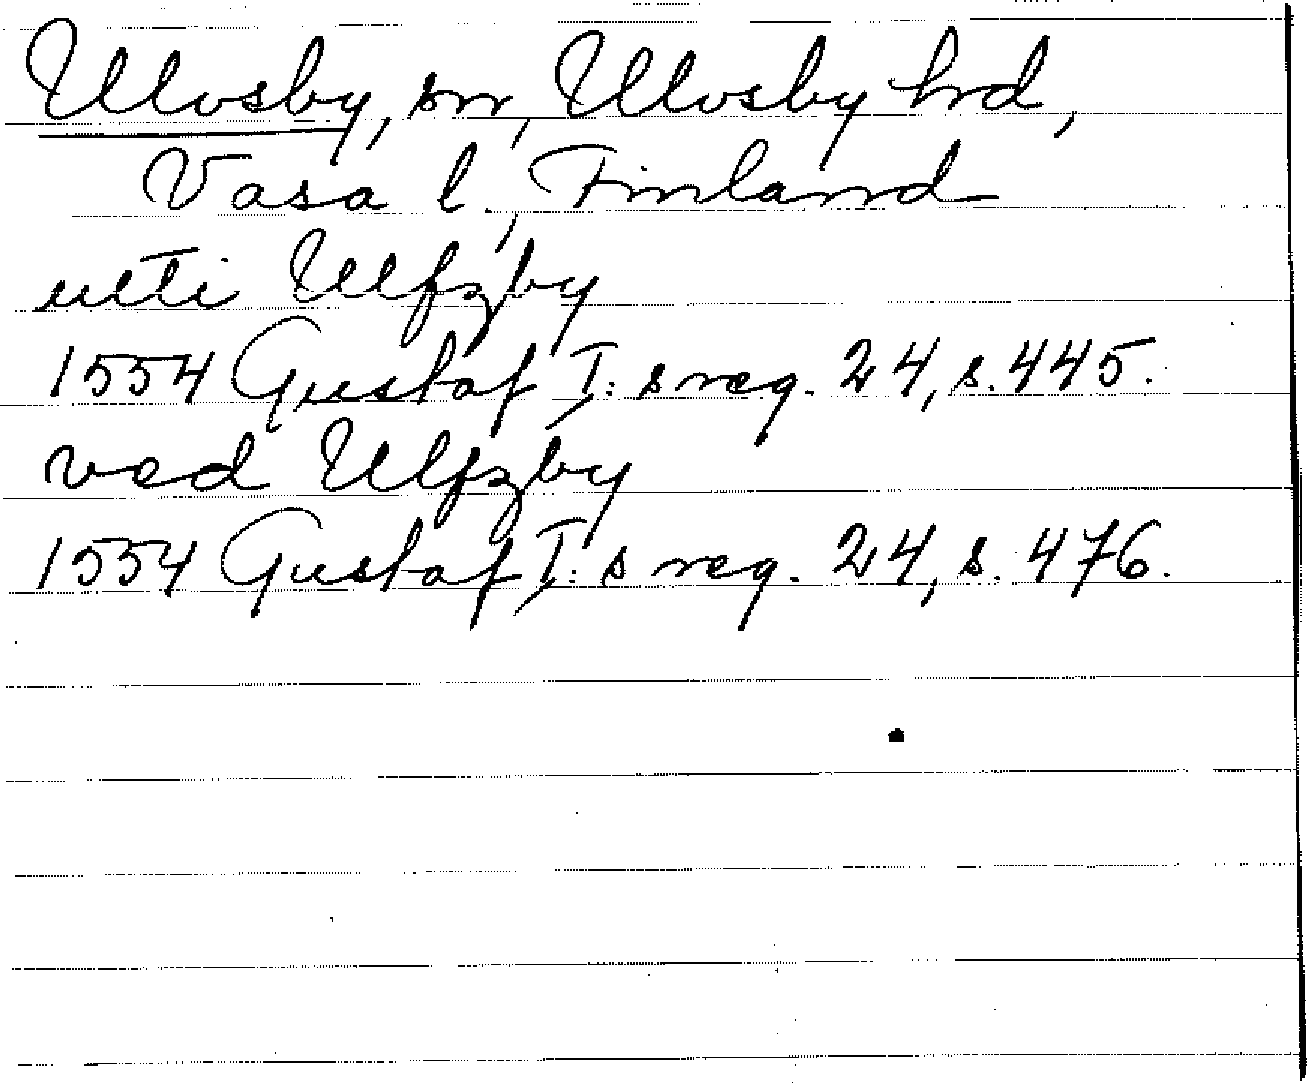 Ulvsby, sn, Ulvsby hrd,
Vasa l., Finland
utti Ulfzby
1554 Gustaf I:s reg. 24, s. 445.
ved Ulfzby
1554 Gustaf I:s reg. 24, s. 476.